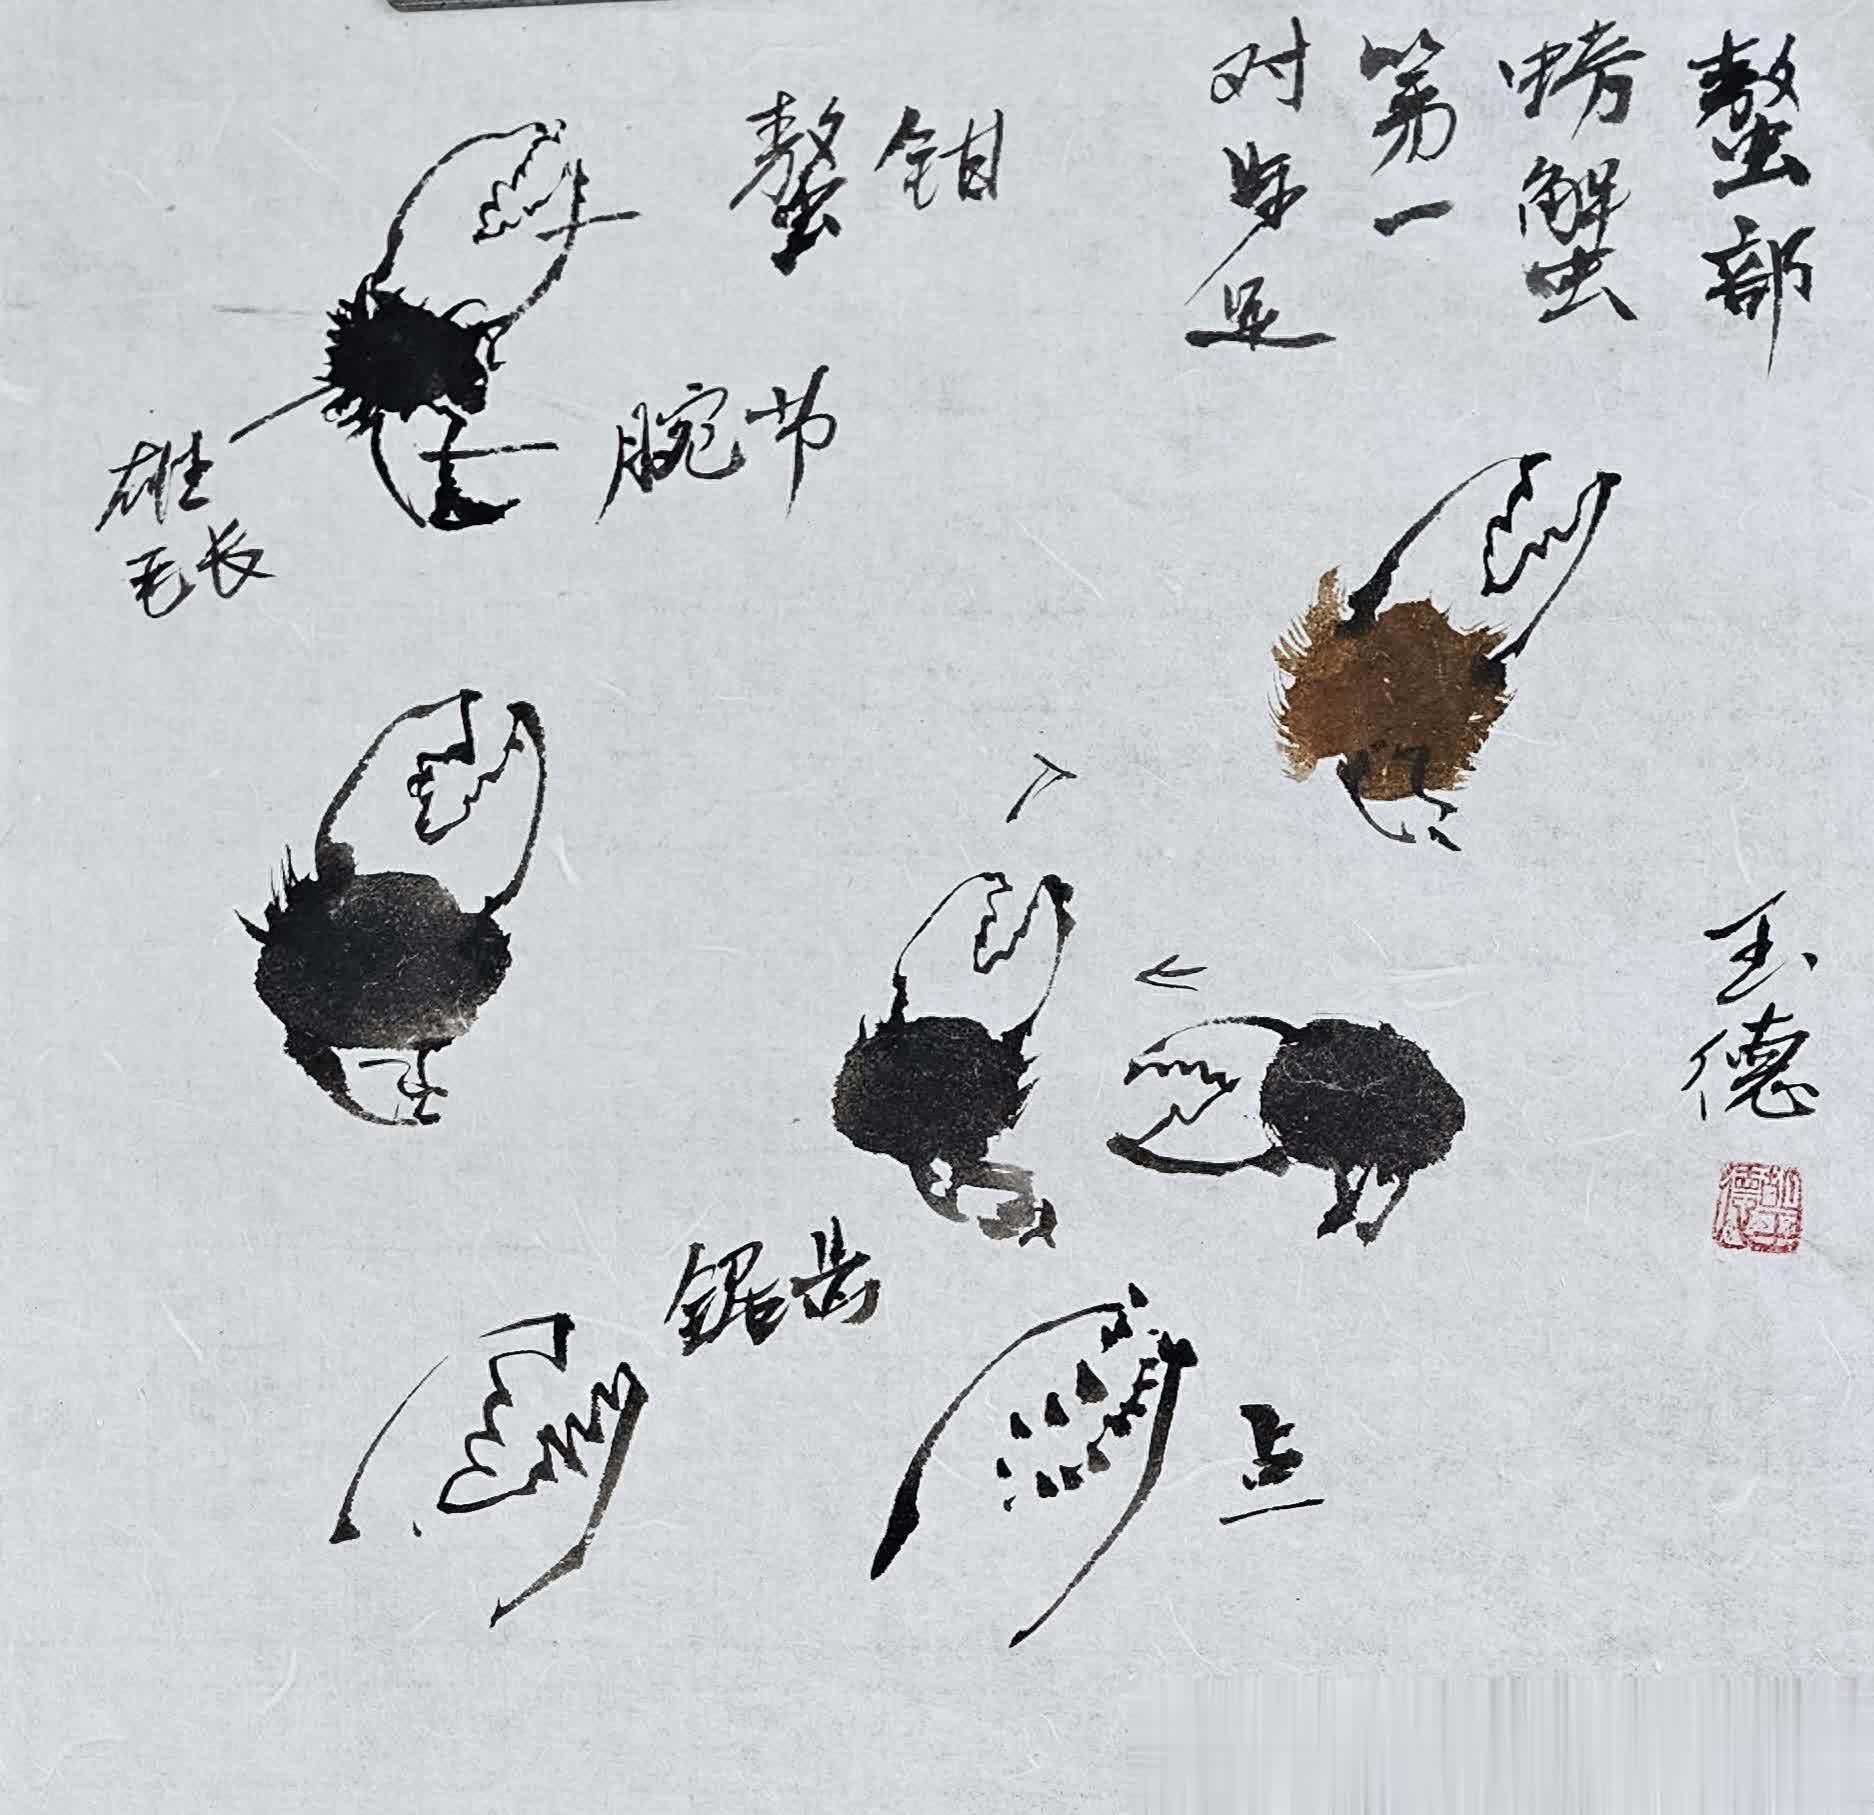 螯部
螃蟹
第一
对步足
螯钳
腕节
雄
毛长
玉德
锯齿
点